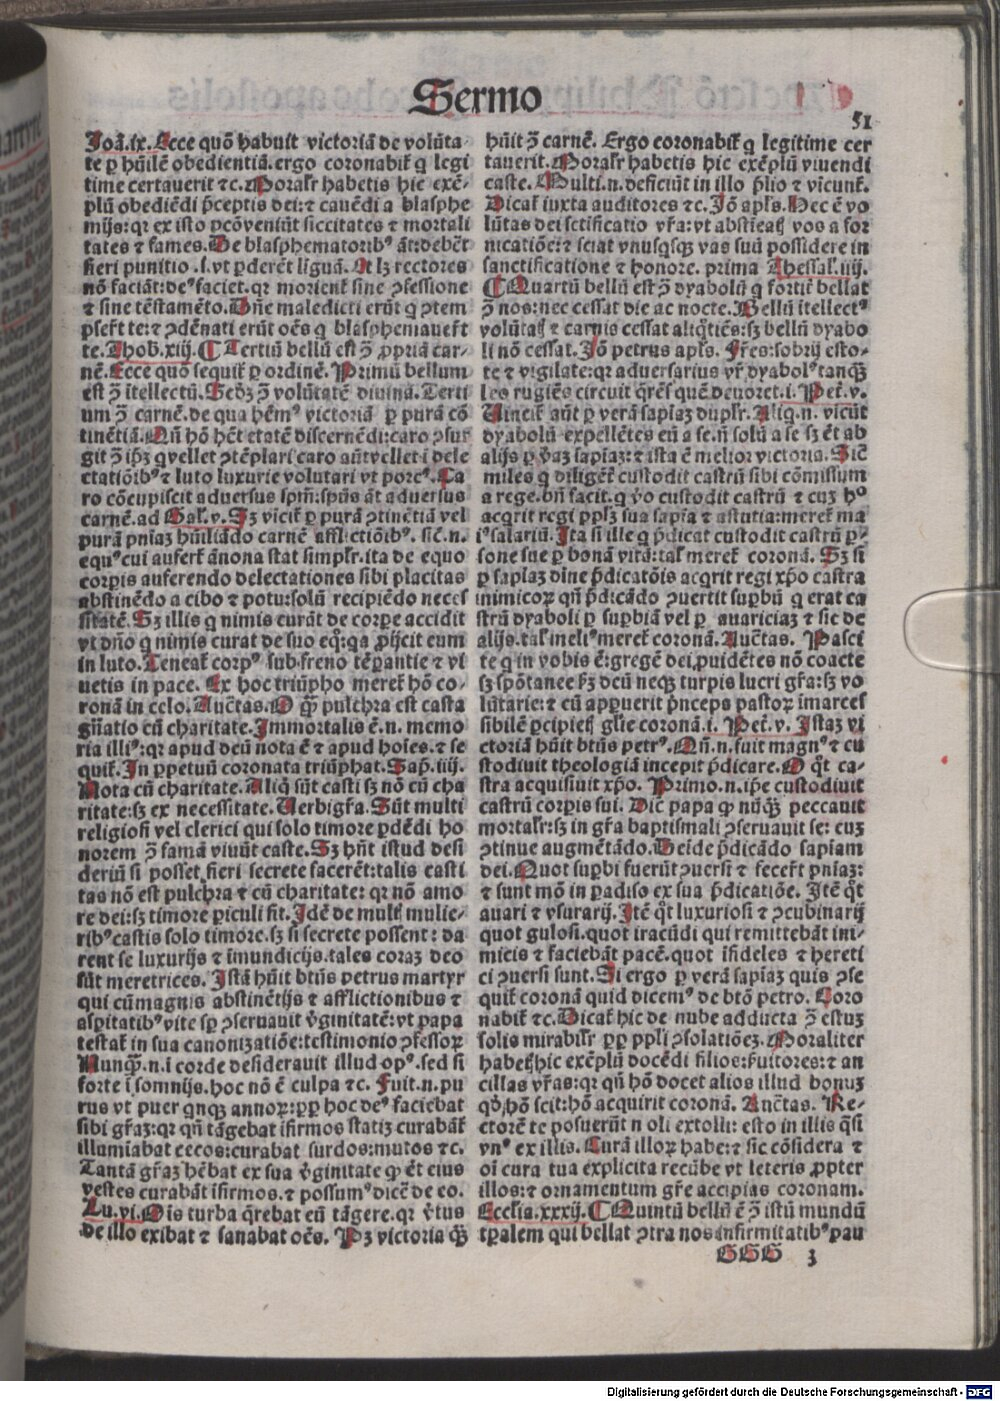 Sermo
51
Joā.ix. Ecce quō habuit victoriā de volūta-
te ꝑ hūilē obedientiā. ergo coronabit̄ q̄ legi
time certauerit ⁊c. Moralr̄ habetis hic exē-
plū obediēdi p̄ceptis dei: ⁊ cauēdi a blasphe
mijs: qr ex isto ꝓcōveniūt siccitates ⁊ mortali
tates ⁊ fames. De blasphematoribꝰ āt: debēt
fieri punitio .s. vt ꝑderēt linguā. At lꝫ rectores
nō faciāt: deꝰ faciet. qr morient̄ sine ꝯfessione
⁊ sine tēstamēto. Vn̄e maledicti erūt q ꝯtem
pserūt te: ⁊ ꝯdēnati erūt oēs q blasphemauerūt
te. Thob. xiij. ¶ Tertiū bellū est ꝯ̄ ꝓpriā car-
nē. Ecce quō sequit̄ ꝑ ordinē. Primū bellum
est ꝯ̄ ītellectū. Secōꝫ ꝯ̄ volūtatē diuinā. Terti
um ꝯ̄ carnē. de qua hēmꝰ victoriā ꝑ purā cō
tinētiā. Qn̄ hō hēt etatē discernēdi: caro ꝯsur
git ꝯ̄ ip̄ꝫ q vellet ꝯtēplari caro aūt vellet ī dele
ctatiōibꝰ ⁊ luto luxurie volutari vt porcꝰ. Ca
ro cōcupiscit aduersus spm̄: spūs āt aduersus
carnē. ad Gal. v. Sꝫ vicit̄ ꝑ purā ꝯtinētiā vel
purā pniaꝫ hūiliādo carnē afflictiōibꝰ. sic̄. n.
equꝰ cui aufert̄ ānona stat simplr̄. ita de equo
corpis auferendo delectationes sibi placitas
abstinēdo a cibo ⁊ potu: solū recipiēdo neces
sitatē. Sꝫ illis q nimis curāt de corpe accidit
vt dn̄o q nimis curat de suo eq̄: qꝛ ꝓijcit eum
in luto. Teneat̄ corpꝰ sub freno tēꝑantie ⁊ vi
uetis in pace. Ex hoc triūpho meret̄ hō co-
ronā in celo. Auct̄as. O q̄ꝫ pulchra est casta
gn̄atio cū charitate. Immortalis ē. n. memo
ria illiꝰ: qr apud deū nota ē ⁊ apud hoies. ⁊ se
quit̄. In ꝑpetuū coronata triūphat. Sap. iiij.
Nota cū charitate. Aliq̄ sūt casti sꝫ nō cū cha
ritate: sꝫ ex necessitate. Verbigr̄a. Sūt multi
religiosi vel clerici qui solo timore ꝑdēdi ho
norem ꝯ̄ famā viuūt caste. Sꝫ hn̄t istud desi
deriū si posset fieri secrete sacerēt: talis casti
tas nō est pulchra ⁊ cū charitate: qr nō amo
re dei: sꝫ timore ꝑiculi fit. Idē de multꝭ mulie-
ribꝰ castis solo timore. sꝫ si secrete possent: da
rent se luxurijs ⁊ īmundicijs. tales coraꝫ deo
sūt meretrices. Istā hūit btūs petrus martyr
qui cū magnis abstinētijs ⁊ afflictionibus ⁊
aspitatibꝰ vite sp̄ ꝯseruauit v̄ginitatē: vt papa
testat̄ in sua canonizatiōe: testimonio ꝯfessoꝝ
Nunq̄ꝫ. n. ī corde desiderauit illud opꝰ. sed si
forte ī somnijs. hoc nō ē culpa ⁊c. Fuit. n. pu
rus vt puer qnqꝫ annoꝝ: ꝓp hoc deꝰ faciebat
sibi gr̄aꝫ: qr qn̄ tāgebat īfirmos statiꝫ curabāt̄
illumīabat cecos: curabat surdos: mutos ⁊c.
Tantā gr̄aꝫ hēbat ex sua v̄ginitate ꝙ ēt eius
vestes curabāt īfirmos. ⁊ possumꝰ dicē de eo.
Lu. vi. Ois turba q̄rebat eū tāgere. qr v̄tus
de illo exibat ⁊ sanabat oēs. Pꝫ victoria q̄ꝫ
hūit ꝯ̄ carnē. Ergo coronabit̄ q legitime cer
tauerit. Moralr̄ habetis hic exēplū viuendi
caste. Multi. n. deficiūt in illo p̄lio ⁊ vicunt̄.
Dicat̄ iuxta auditores ⁊c. Jō apl̄s. Hec ē vo
lūtas dei sctificatio vr̄a: vt abstīeatꝭ vos a for
nicatiōe: ⁊ sciat vnusqsqꝫ vas suū possidere in
sanctificatione ⁊ honore. prima Thessal. iiij.
¶ Quartū bellū est ꝯ̄ dyabolū q fortit̄ bellat
ꝯ̄ nos: nec cessat die ac nocte. Bellū ītellectꝰ
volūtatꝭ ⁊ carnis cessat aliqtiēs: sꝫ bellū dyabo
li nō cessat. Jō petrus apl̄s. Fr̄es: sobrij esto-
te ⁊ vigilate: qr aduersarius vr̄ dyabolꝰ tanqꝫ
leo rugiēs circuit q̄rēs quē deuoret. i. Pet. v.
Vincit̄ aūt ꝑ verā sapiaꝫ duplr̄. Aliq. n. vicūt
dyabolū expellētes eū a se. n̄ solū a se sꝫ ēt ab
alijs ꝑ v̄aꝫ sapiaꝫ: ⁊ ista ē melior victoria. Sic̄
miles q diligēt̄ custodit castrū sibi cōmissum
a rege. bn̄ facit. q v̄o custodit castrū ⁊ cuꝫ hº
acq̄rit regi ꝓpꝫ sua sapīa ⁊ astutia: meret̄ ma
iꝰ salariū. Ita si ille q p̄dicat custodit castrū ꝑ-
sone sue ꝑ bonā vitā: tal̄ meret̄ coronā. Sꝫ si
ꝑ sapiaꝫ dīne p̄dicatōis acq̄rit regi xp̄o castra
inimicoꝝ qn̄ p̄dicādo ꝯuertit supbū q erat ca
strū dyaboli ꝑ supbiā vel ꝑ auariciaꝫ ⁊ sic de
alijs. tal̄ meliꝰ meret̄ coronā. Auct̄as. Pasci
te q in vobis ē: gregē dei, ꝓuidētes nō coacte
sꝫ spōtanee scd̄ꝫ deū neqꝫ turpis lucri gr̄a: sꝫ vo
lūtarie: ⁊ cū apꝑuerit p̄nceps pastoꝝ īmarces
sibilē ꝑcipietꝭ glīe coronā. i. Pet. v. Istaꝫ vi
ctoriā hūit btūs petrꝰ. Qn̄. n. fuit magnꝰ ⁊ cu
stodiuit theologiā incepit p̄dicare. O qt̄ ca-
stra acquisiuit xp̄o. Primo. n. ip̄e custodiuit
castrū corpis sui. Dic̄ papa q̄ nūq̄ꝫ peccauit
mortalr̄: sꝫ in gr̄a baptismali ꝯseruauit se: cuꝫ
ꝯtinue augmētādo. Deīde p̄dicādo sapiam
dei. Quot supbi fuerūt ꝯuersi ⁊ fecert̄ pniaꝫ:
⁊ sunt mō in padiso ex sua p̄dicatiōe. Itē qt̄
auari ⁊ vsurarij. Itē qt̄ luxuriosi ⁊ ꝯcubinarij
quot gulosi. quot iracūdi qui remittebāt ini-
micis ⁊ faciebāt pacē. quot īfideles ⁊ hereti
ci ꝯuersi sunt. Si ergo ꝑ verā sapiaꝫ quis ꝯse
quit̄ coronā quid dicemꝰ de btō petro. Coro
nabit̄ ⁊c. Dicat̄ hic de nube adducta ꝯ̄ estuꝫ
solis mirabilr̄ ꝓp ppli ꝯsolatiōeꝫ. Moraliter
habetꝭ hic exēplū docēdi filios: f̄uitores: ⁊ an
cillas vr̄as: qr qn̄ hō docet alios illud bonuꝫ
qd̄ hō scit: hō acquirit coronā. Auct̄as. Re-
ctorē te posuerūt n oli extolli: esto in illis q̄si
vnꝰ ex illis. Curā illoꝝ habe: ⁊ sic cōsidera ⁊
oī cura tua explicita recūbe vt leteris ꝓpter
illos: ⁊ ornamentum gr̄e accipias coronam.
Ecclīa. xxxij. ¶ Quintū bellū ē ꝯ̄ istū mundū
tꝑalem qui bellat ꝯtra nos infirmitatibꝰ pau
GGG 3
Digitalisierung gefördert durch die Deutsche Forschungsgemeinschaft - DFG